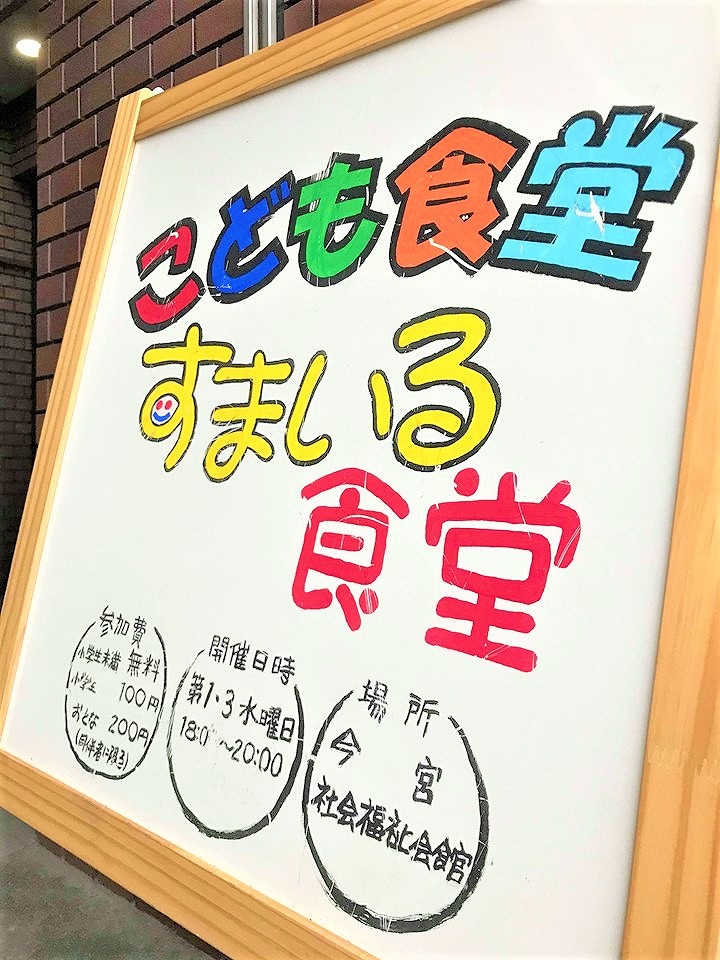 こども食堂
すまいる
食堂
参加費
小学生未満 無料
小学生 100円
おとな 200円
(同伴者に限る)
開催日時
第1・3水曜日
18:0 ~20:00
場所
今宮
社会福祉会館